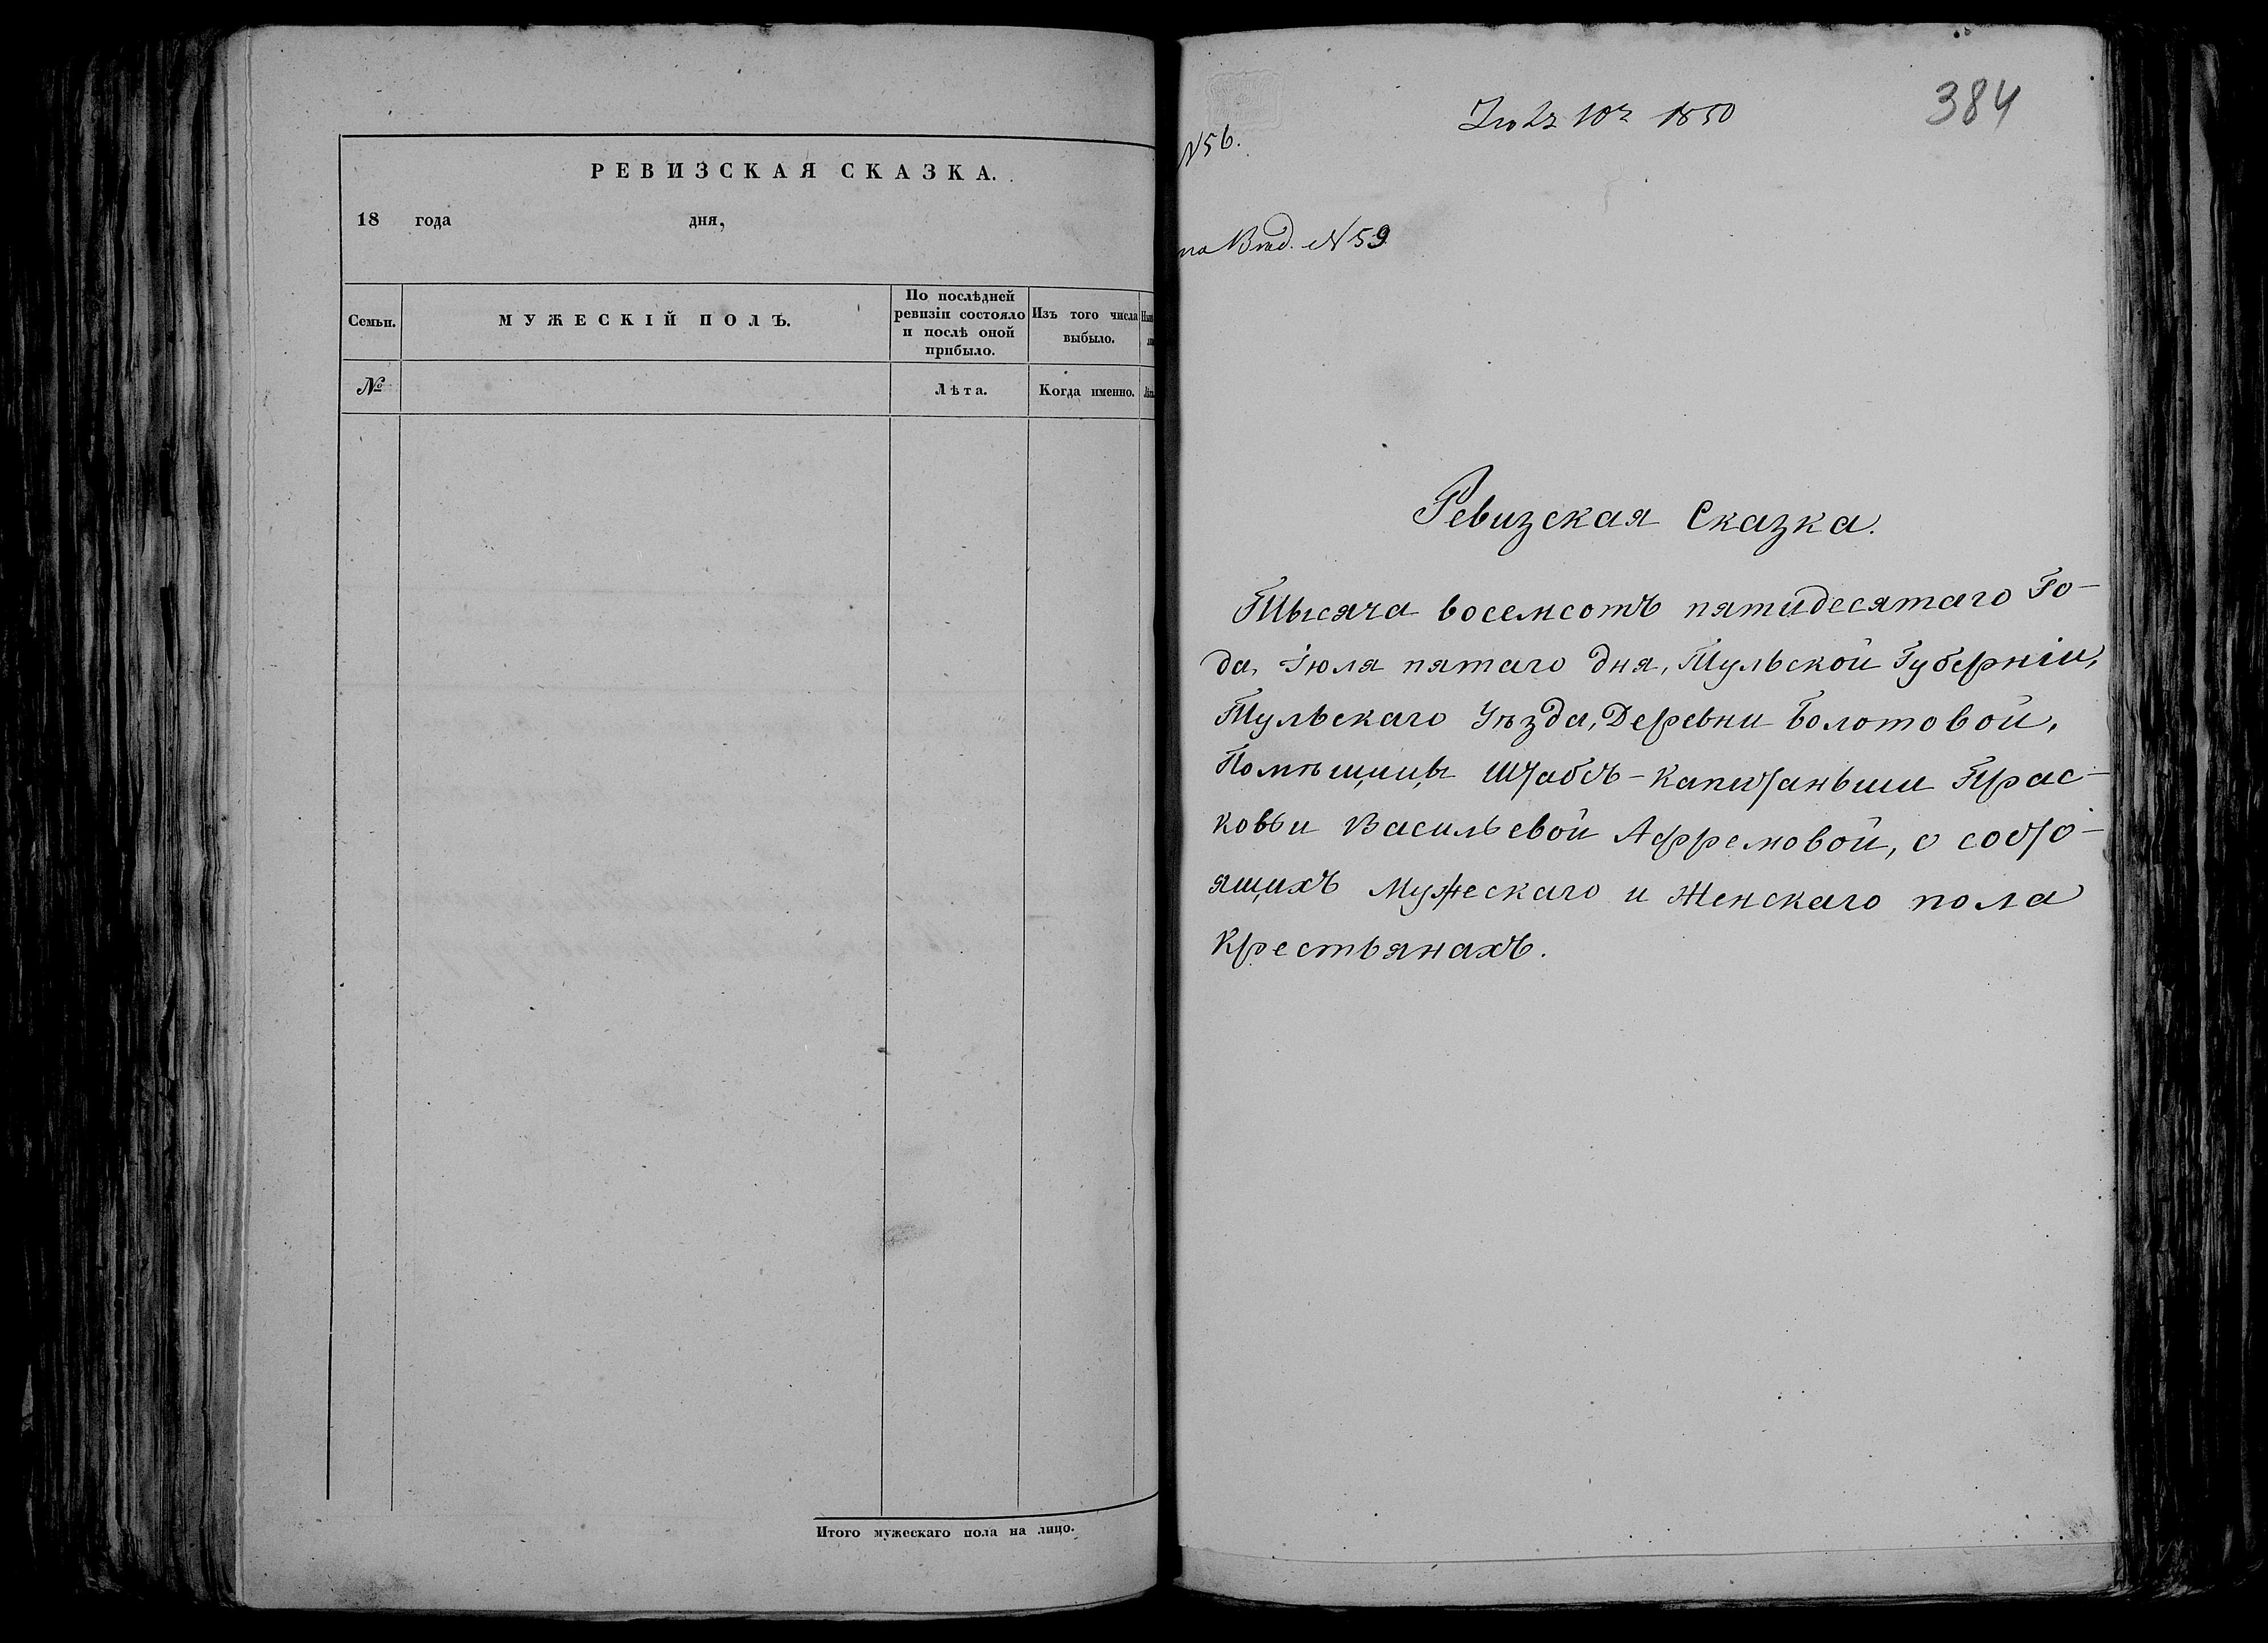 РЕВИЗСКАЯ СКАЗКА.
18 года дня,
Семьи.
МУЖЕСКІЙ ПОЛЪ.
По послѣдней
ревизіи состояло
и послѣ оной
прибыло.
Изъ того числа
выбыло.
№
Лѣта.
Когда именно.
Итого мужескаго пола на лицо.
384
1850
N56.
N59
Ревизская Сказка.
Тысяча восемсотъ пятидесятаго Го-
да, Іюля пятаго дня, Тульской Губерніи,
Тульскаго Уѣзда, Деревни Болотовой,
Помѣщицы Штабсъ-Капитанши Прас-
ковьи Васильевой Афремовой, о состо-
ящихъ Мужескаго и Женскаго пола
Крестьянахъ.